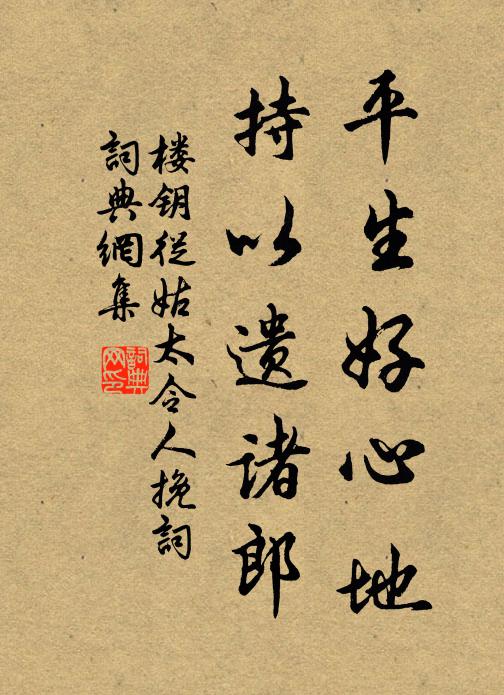 平生好心地
持以遗诸郎
楼钥從姑太令人挽詞
詞典網集
詞典网印